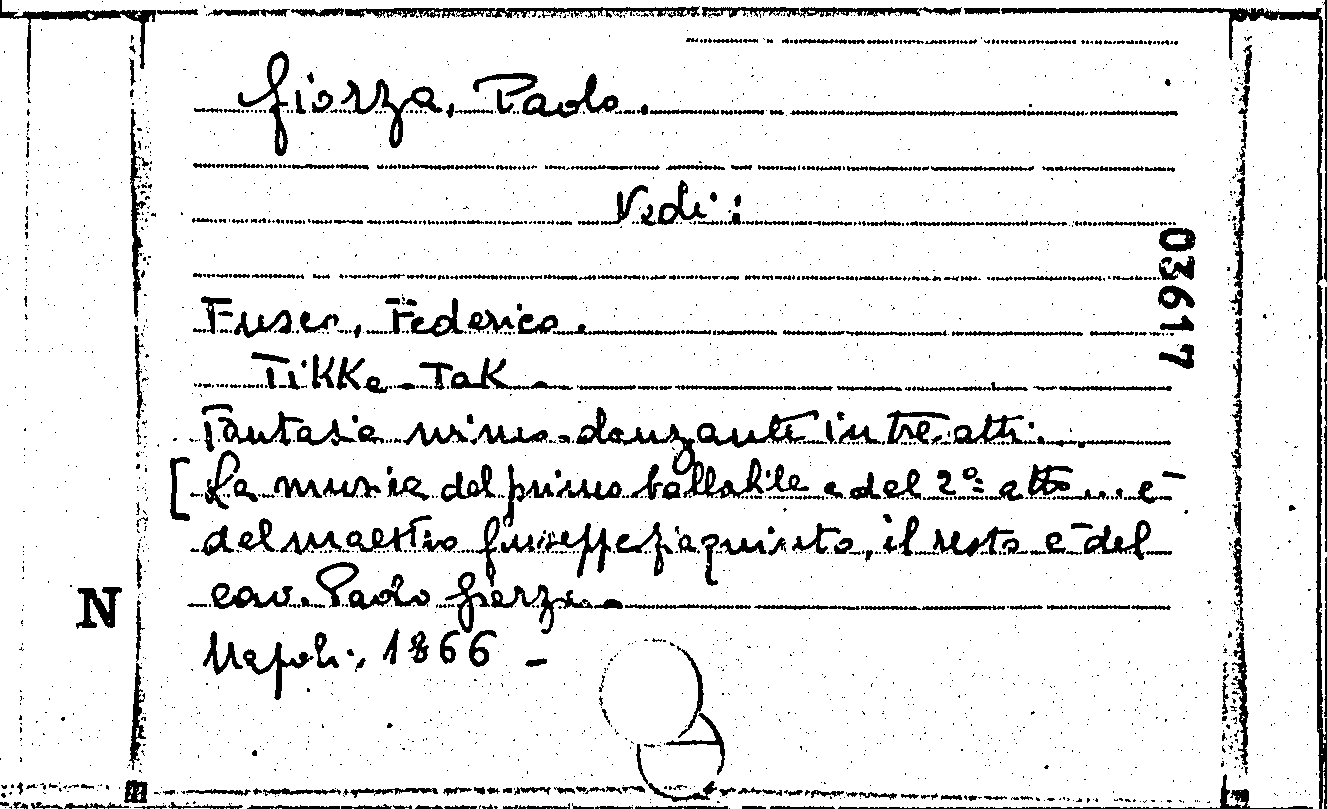 Giorza, Paolo.
Vedi:
03617
Fusco, Federico.
Tikke-Tak.
Fantasia mimo-danzante in tre atti.
[La musica del primo ballabile e del 2º: atto... è
del maestro Giuseppe Giaquinto, il resto è del
cav. Paolo Giorza.
N
Napoli, 1866 -